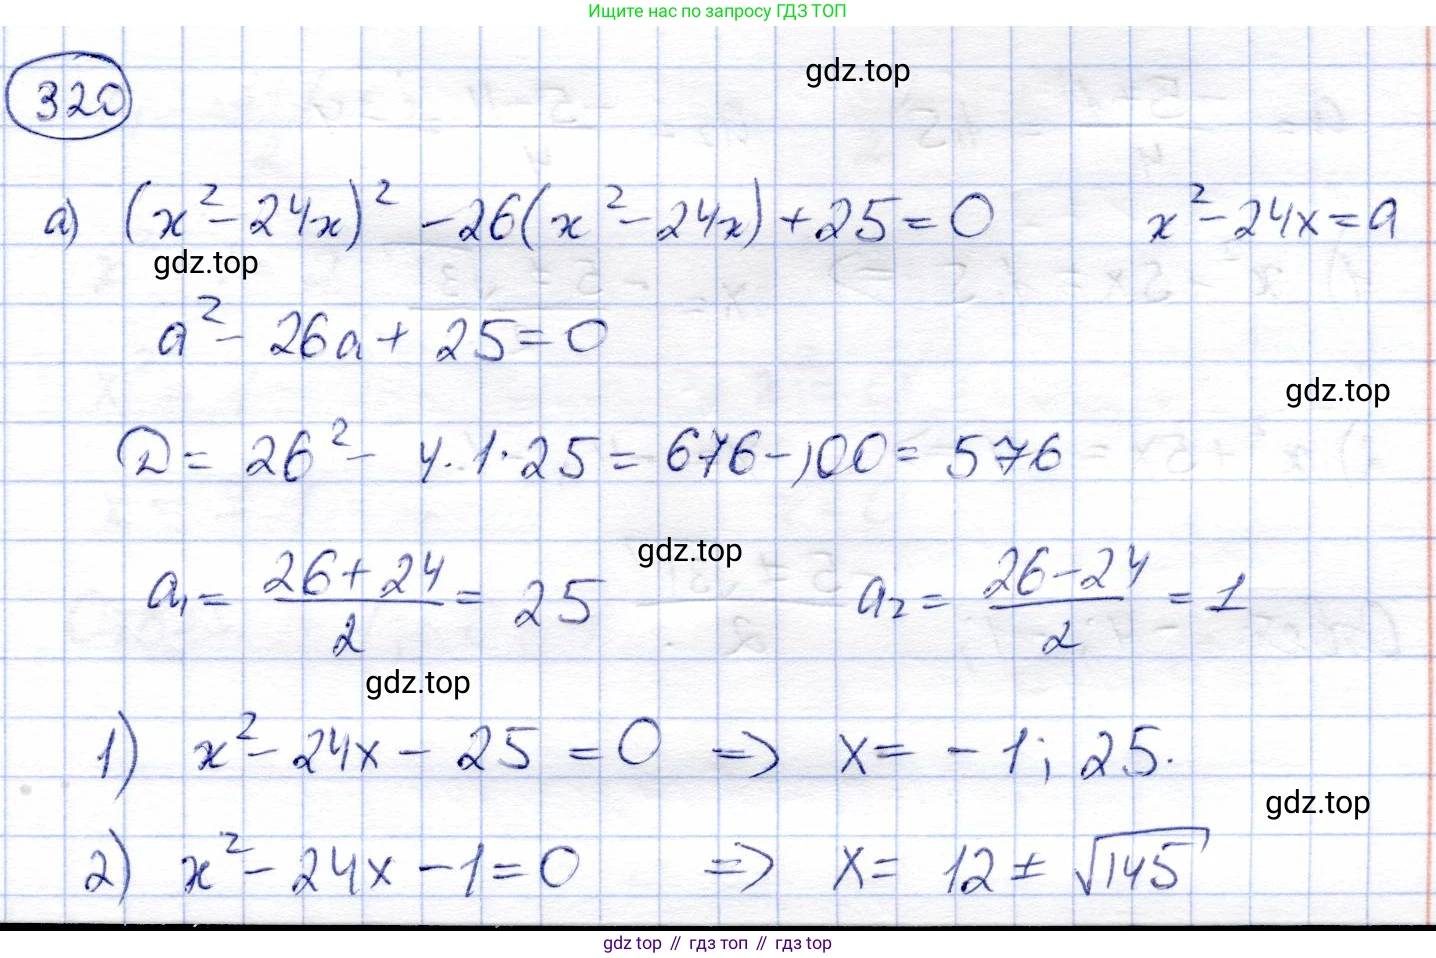 Ищите нас по запросу ГДЗ ТОП
gdz.top
320
а) (x² - 24x)² - 26(x² - 24x) + 25 = 0    x² - 24x = a
gdz.top
a² - 26a + 25 = 0
gdz.top
D = 26² - 4·1·25 = 676 - 100 = 576
gdz.top
a₁ = (26 + 24)/2 = 25    a₂ = (26 - 24)/2 = 1
gdz.top
1) x² - 24x - 25 = 0 => x = -1; 25.
gdz.top
2) x² - 24x - 1 = 0 => x = 12 ± √145
gdz top // гдз топ // gdz top